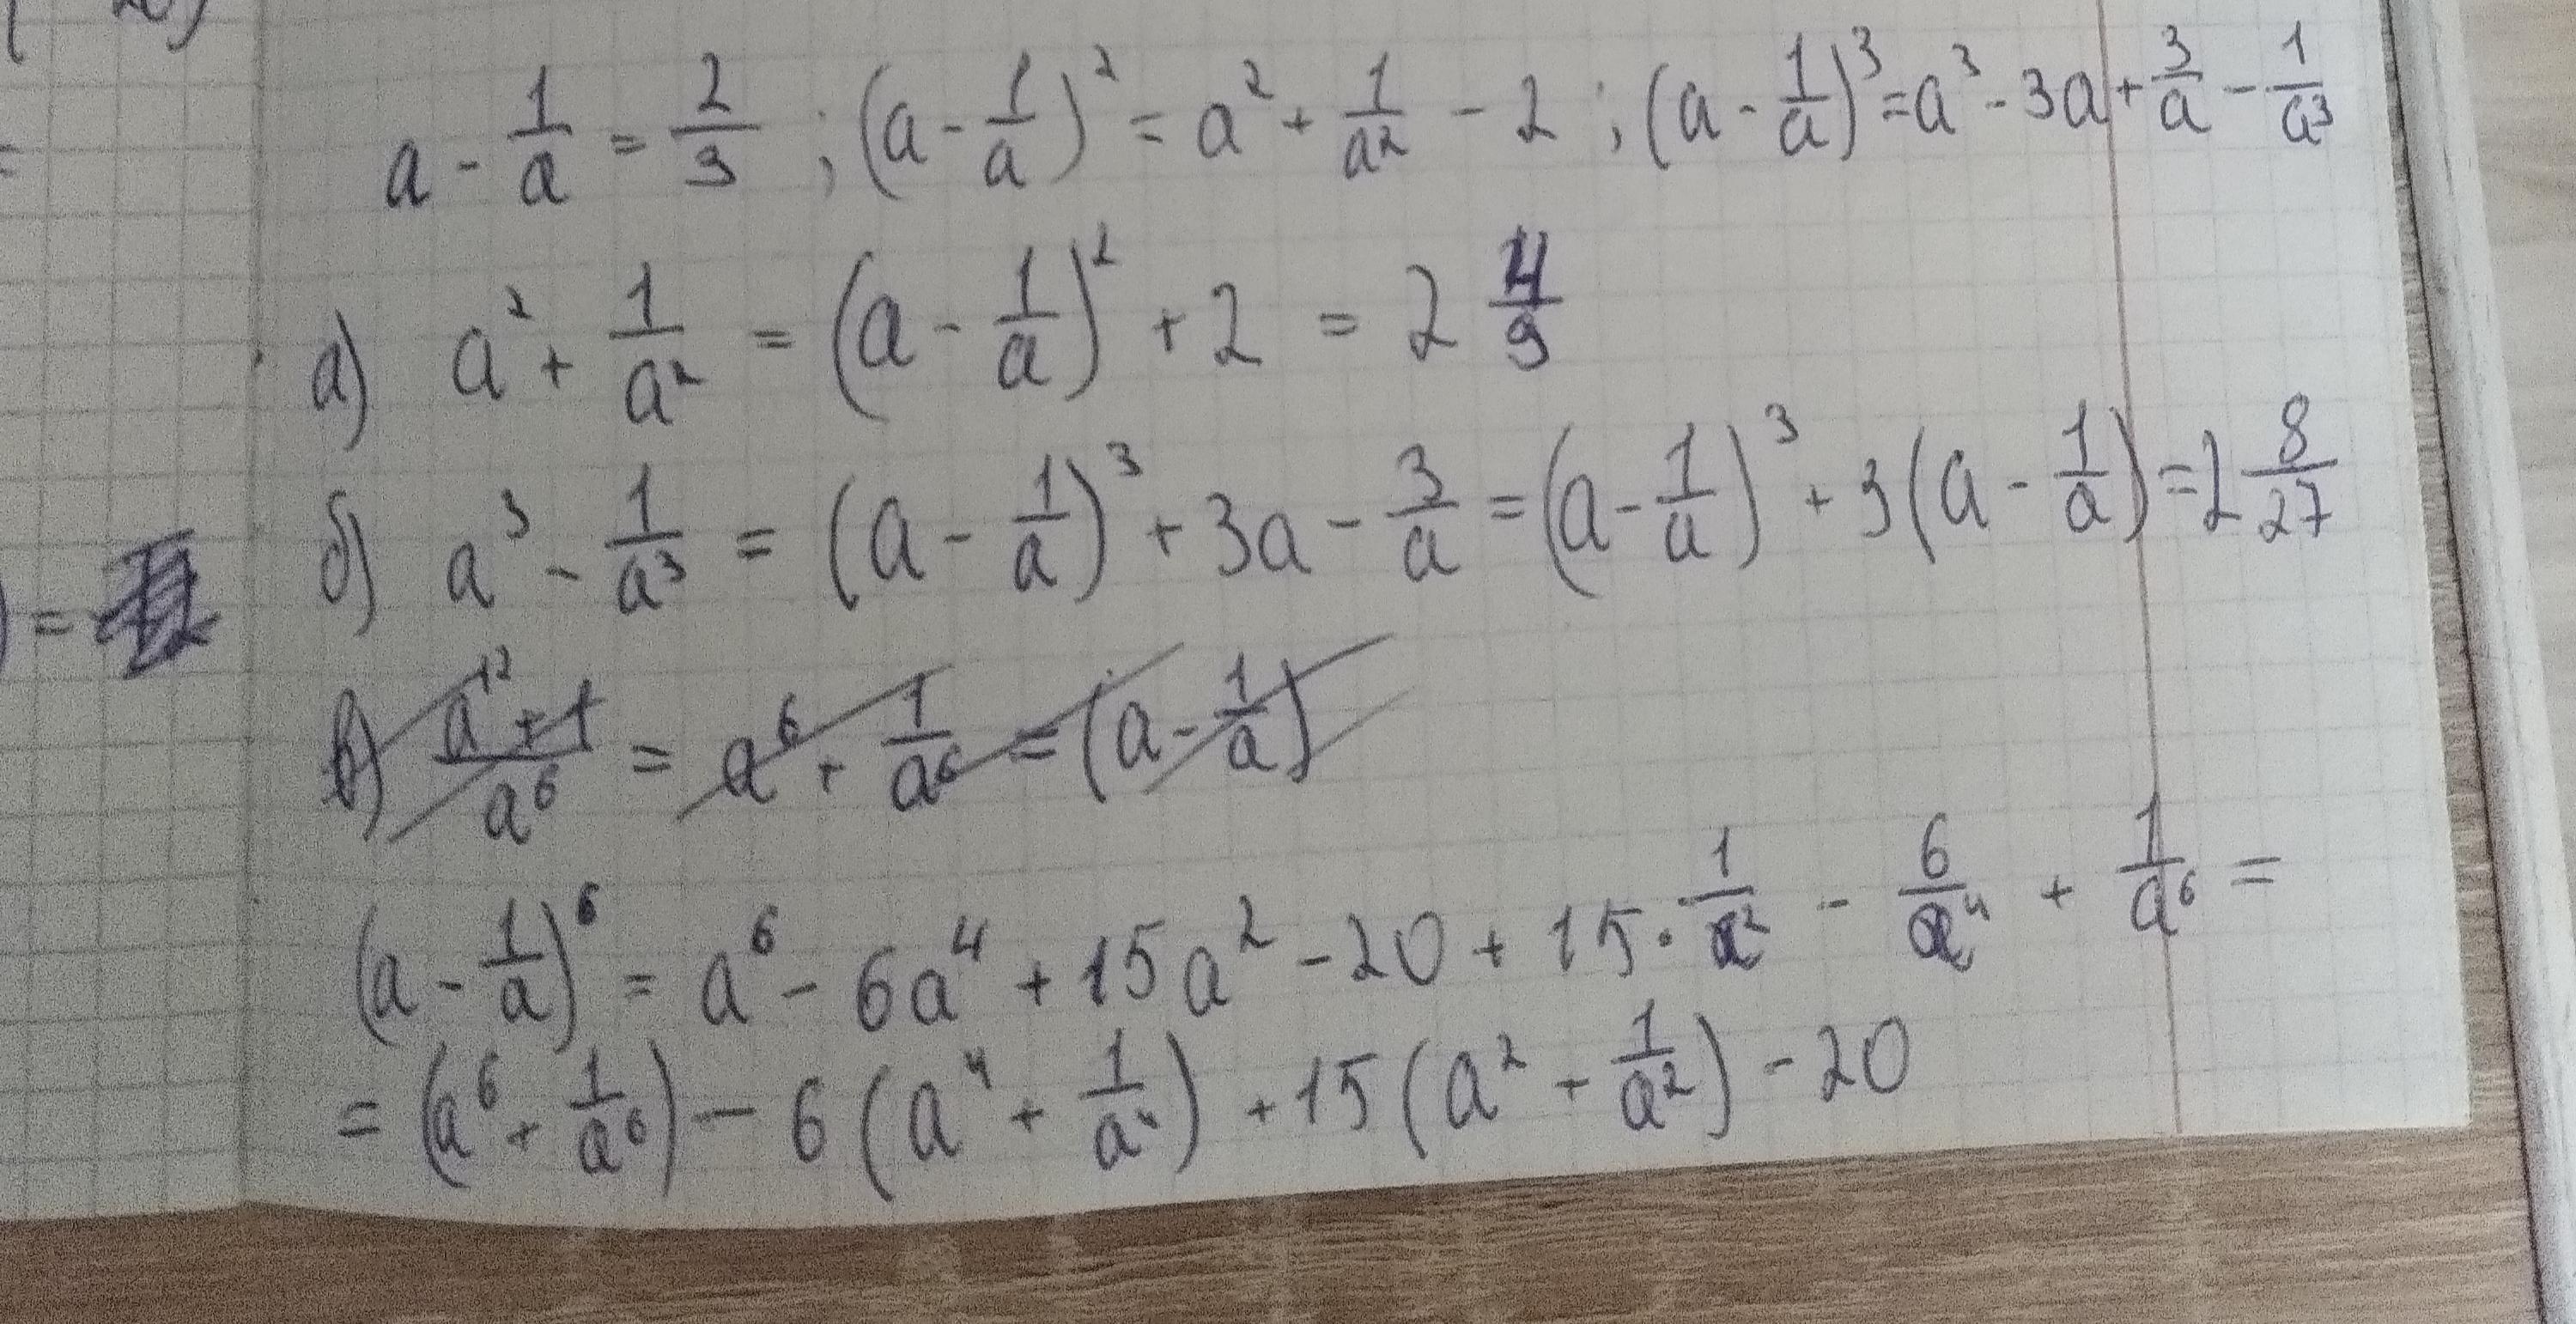 a - 1/a = 2/3 ; (a - 1/a)² = a² + 1/a² - 2 ; (a - 1/a)³ = a³ - 3a + 3/a - 1/a³
а) a² + 1/a² = (a - 1/a)² + 2 = 2 4/9
б) a³ - 1/a³ = (a - 1/a)³ + 3a - 3/a = (a - 1/a)³ + 3(a - 1/a) = 2 8/27
) =
в) (a¹² + 1)/a⁶ = a⁶ + 1/a⁶ = (a - 1/a)
(a - 1/a)⁶ = a⁶ - 6a⁴ + 15a² - 20 + 15 · 1/a² - 6/a⁴ + 1/a⁶ =
= (a⁶ + 1/a⁶) - 6(a⁴ + 1/a⁴) + 15(a² + 1/a²) - 20